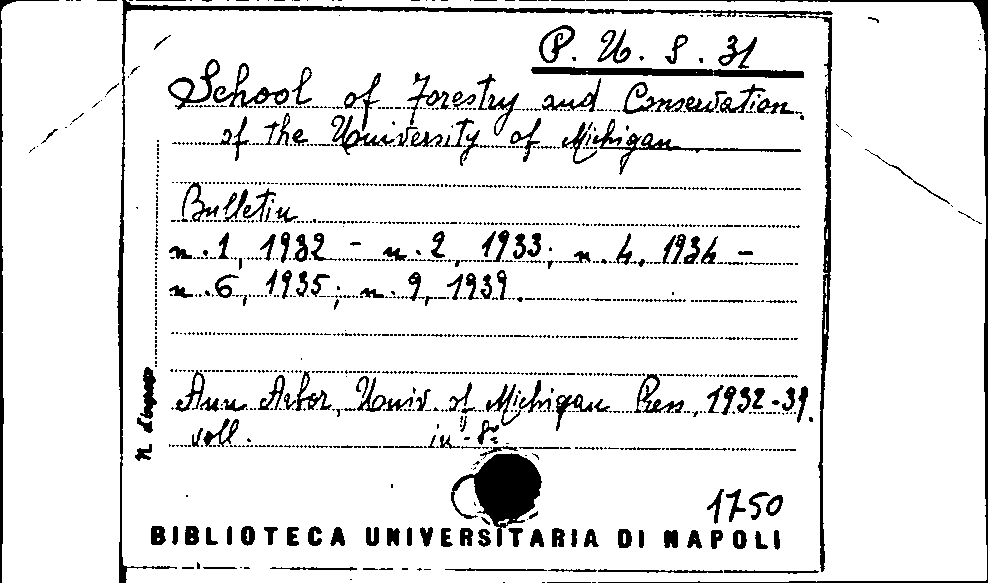 P. U. S. 31
School of Forestry and Conservation
of the University of Michigan.
Bulletin.
n. 1, 1932 - n. 2, 1933; n. 4, 1934 -
n. 6, 1935; n. 9, 1939.
Ann Arbor, Univ. of Michigan Press, 1932-39.
voll. in-8°
N. d'ingresso
1750
BIBLIOTECA UNIVERSITARIA DI NAPOLI